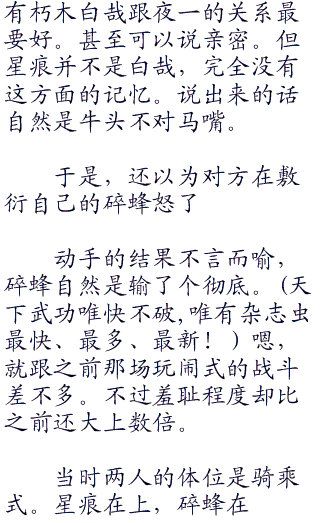 有朽木白哉跟夜一的关系最
要好。甚至可以说亲密。但
星痕并不是白哉，完全没有
这方面的记忆。说出来的话
自然是牛头不对马嘴。
于是，还以为对方在敷
衍自己的碎蜂怒了
动手的结果不言而喻，
碎蜂自然是输了个彻底。(天
下武功唯快不破,唯有杂志虫
最快、最多、最新！)嗯，
就跟之前那场玩闹式的战斗
差不多。不过羞耻程度却比
之前还大上数倍。
当时两人的体位是骑乘
式。星痕在上，碎蜂在